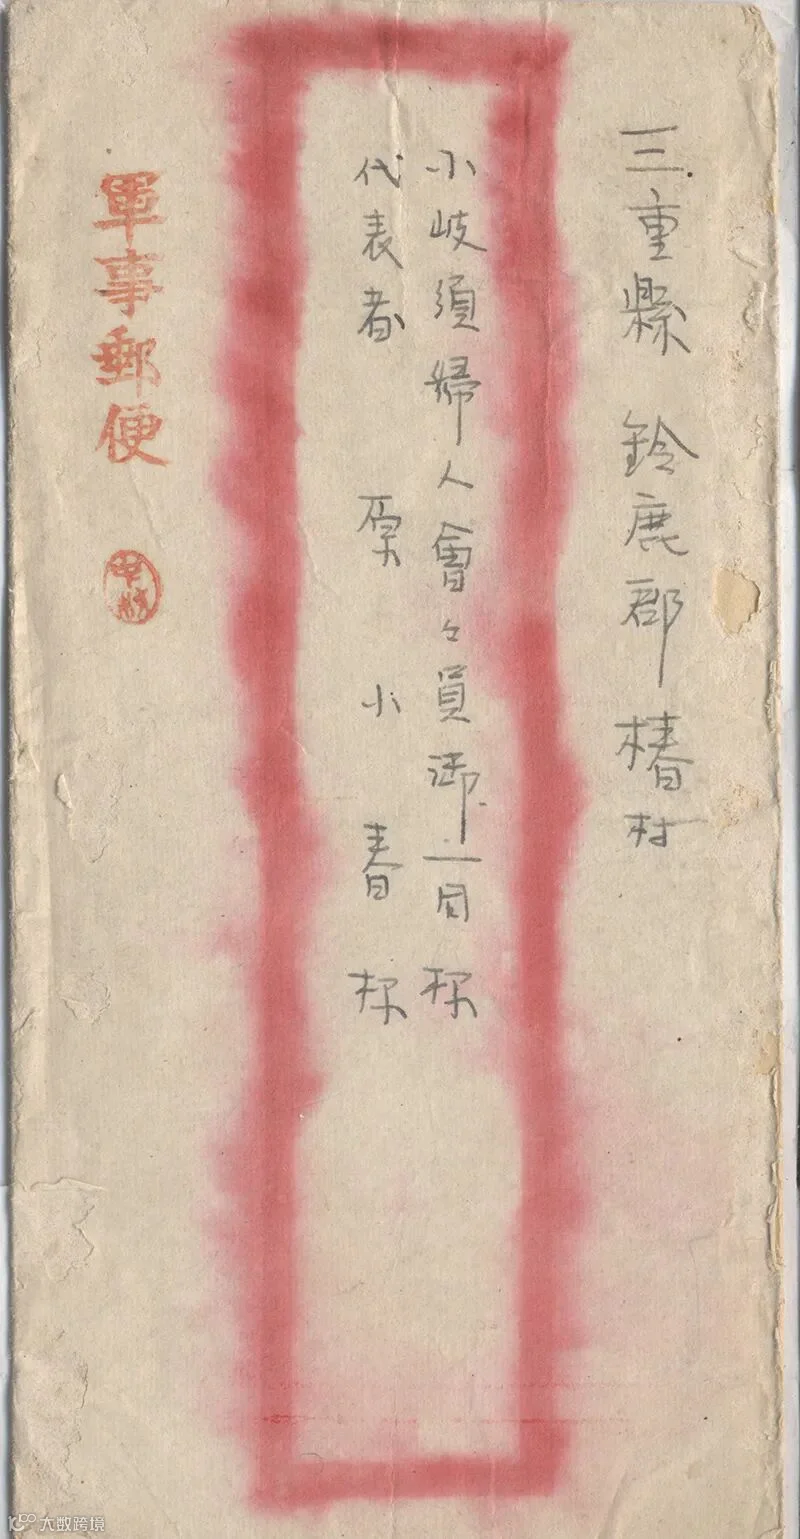 三重縣 鈴鹿郡 椿村
小岐須婦人會々員御一同様
代表者 原 小春 様
軍事郵便
大数跨境